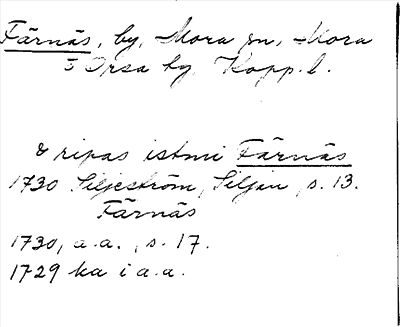 Färnäs, by, Mora sn, Mora
o Orsa hg Kopp. l.
& ripas istmi Färnäs
1730 Siljeström, Siljan, s. 13.
Färnäs
1730, a.a., s. 17.
1729 ka i a.a.